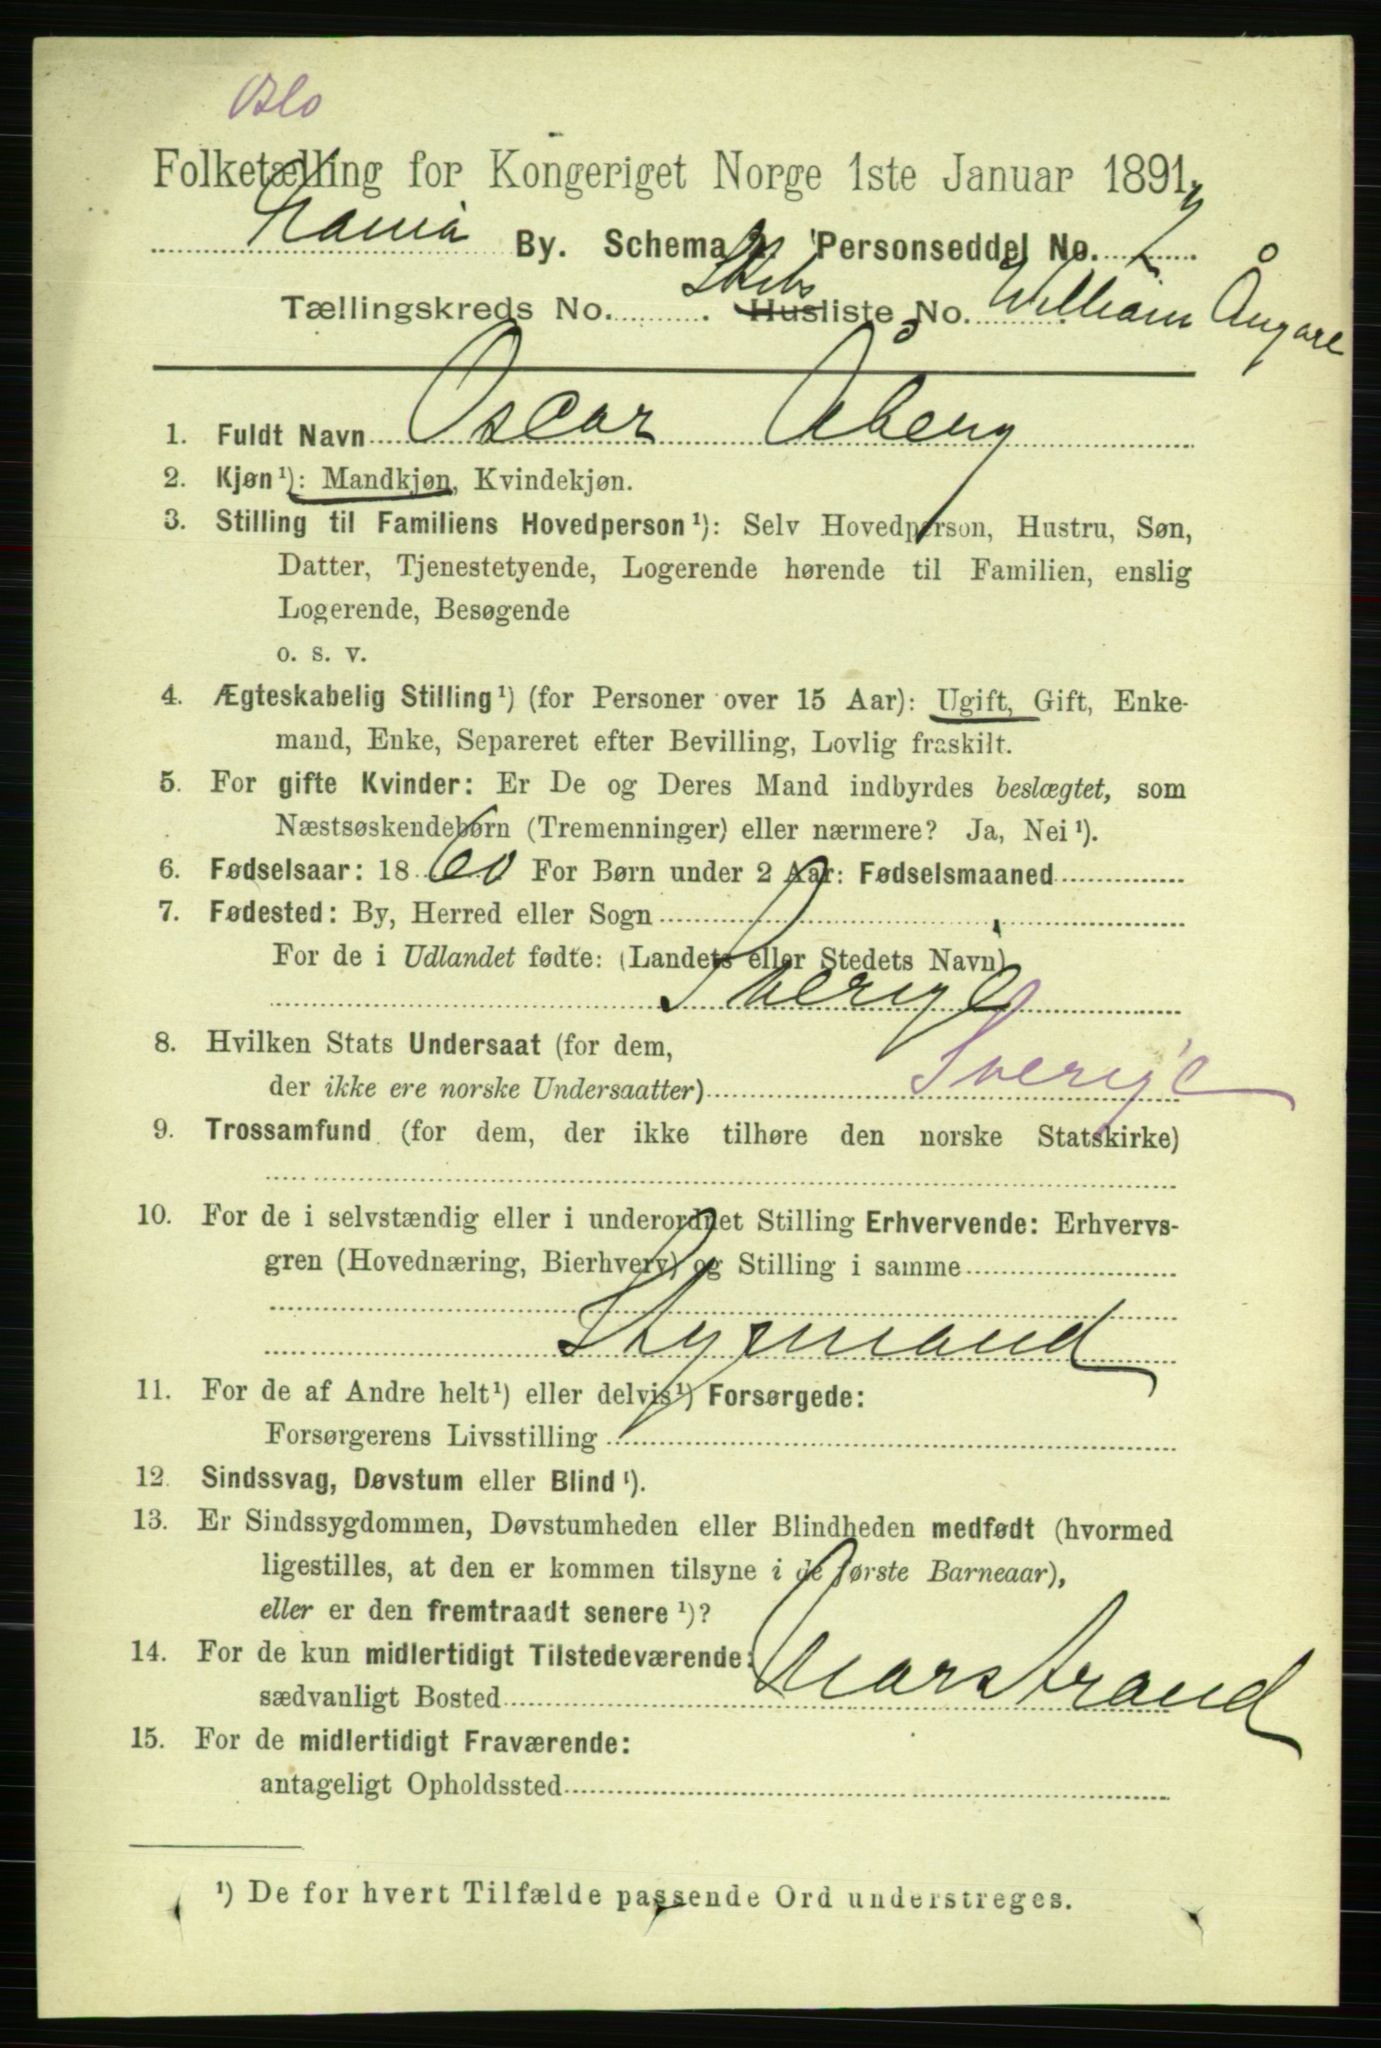 Oslo
Folketælling for Kongeriget Norge 1ste Januar 1891.
By. Schema 2. Personseddel No. 2
Tællingskreds No. . Skibs Husliste No. William Ångare
1. Fuldt Navn Oscar Åberg
2. Kjøn¹): Mandkjøn, Kvindekjøn.
3. Stilling til Familiens Hovedperson¹): Selv Hovedperson, Hustru, Søn,
Datter, Tjenestetyende, Logerende hørende til Familien, enslig
Logerende, Besøgende
o. s. v.
4. Ægteskabelig Stilling¹) (for Personer over 15 Aar): Ugift, Gift, Enke-
mand, Enke, Separeret efter Bevilling, Lovlig fraskilt.
5. For gifte Kvinder: Er De og Deres Mand indbyrdes beslægtet, som
Næstsøskendebørn (Tremenninger) eller nærmere? Ja, Nei¹).
6. Fødselsaar: 1860 For Børn under 2 Aar: Fødselsmaaned
7. Fødested: By, Herred eller Sogn
For de i Udlandet fødte: (Landets eller Stedets Navn)
Sverige
8. Hvilken Stats Undersaat (for dem,
der ikke ere norske Undersaatter) Sverige
9. Trossamfund (for dem, der ikke tilhøre den norske Statskirke)
10. For de i selvstændig eller i underordnet Stilling Erhvervende: Erhvervs-
gren (Hovednæring, Bierhverv) og Stilling i samme
Styrmand
11. For de af Andre helt¹) eller delvis¹) Forsørgede:
Forsørgerens Livsstilling
12. Sindssvag, Døvstum eller Blind¹).
13. Er Sindssygdommen, Døvstumheden eller Blindheden medfødt (hvormed
ligestilles, at den er kommen tilsyne i de første Barneaar),
eller er den fremtraadt senere¹)?
14. For de kun midlertidigt Tilstedeværende:
sædvanligt Bosted Marstrand
15. For de midlertidigt Fraværende:
antageligt Opholdssted
¹) De for hvert Tilfælde passende Ord understreges.